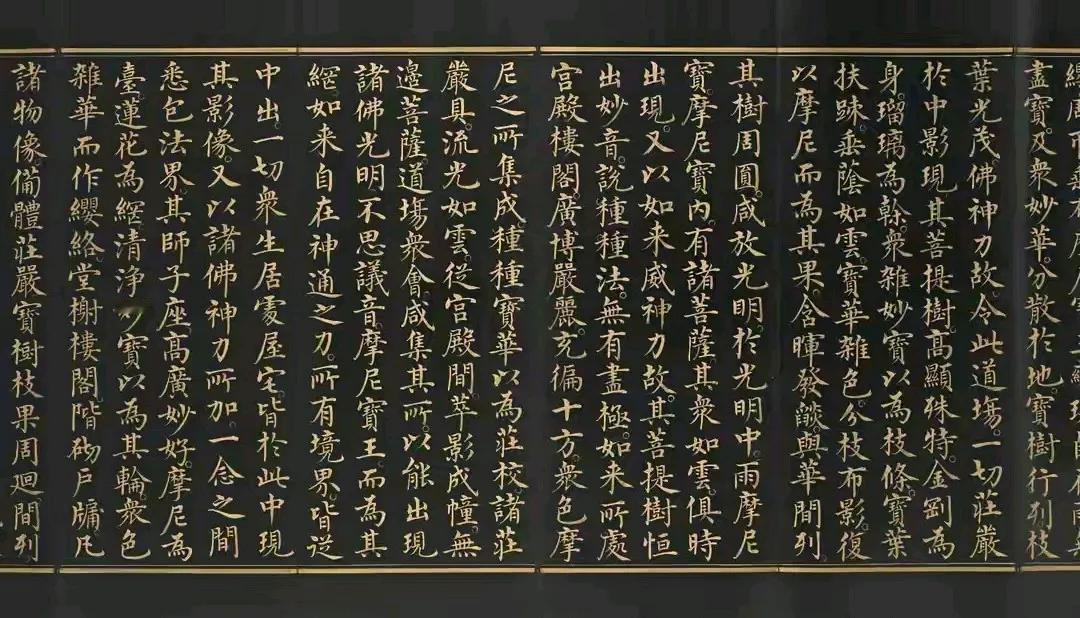 盡寶。及衆妙華。分散於地。寶樹行列。枝
葉光茂。佛神力故。令此道場。一切莊嚴。
於中影現。其菩提樹。高顯殊特。金剛為
身。瑠璃為幹。衆雜妙寶。以為枝條。寶葉
扶踈。垂蔭如雲。寶華雜色。分枝布影。復
以摩尼而為其果。含暉發焰。與華間列。
其樹周圓。咸放光明。於光明中。雨摩尼
寶。摩尼寶內。有諸菩薩。其衆如雲。俱時
出現。又以如来威神力故。其菩提樹恒
出妙音。說種種法。無有盡極。如来所處
宮殿樓閣。廣博嚴麗。充徧十方。衆色摩
尼之所集成。種種寶華以為莊校。諸莊
嚴具。流光如雲。從宮殿間。萃影成幢。無
邊菩薩。道場衆會。咸集其所。以能出現
諸佛光明。不思議音。摩尼寶王。而為其
網。如来自在神通之力。所有境界。皆從
中出。一切衆生居處屋宅。皆於此中現
其影像。又以諸佛神力所加。一念之間
悉包法界。其師子座。高廣妙好。摩尼為
臺。蓮花為網。清淨妙寶以為其輪。衆色
雜華而作纓絡。堂榭樓閣。階砌戶牖。凡
諸物像。備體莊嚴。寶樹枝果。周迴間列